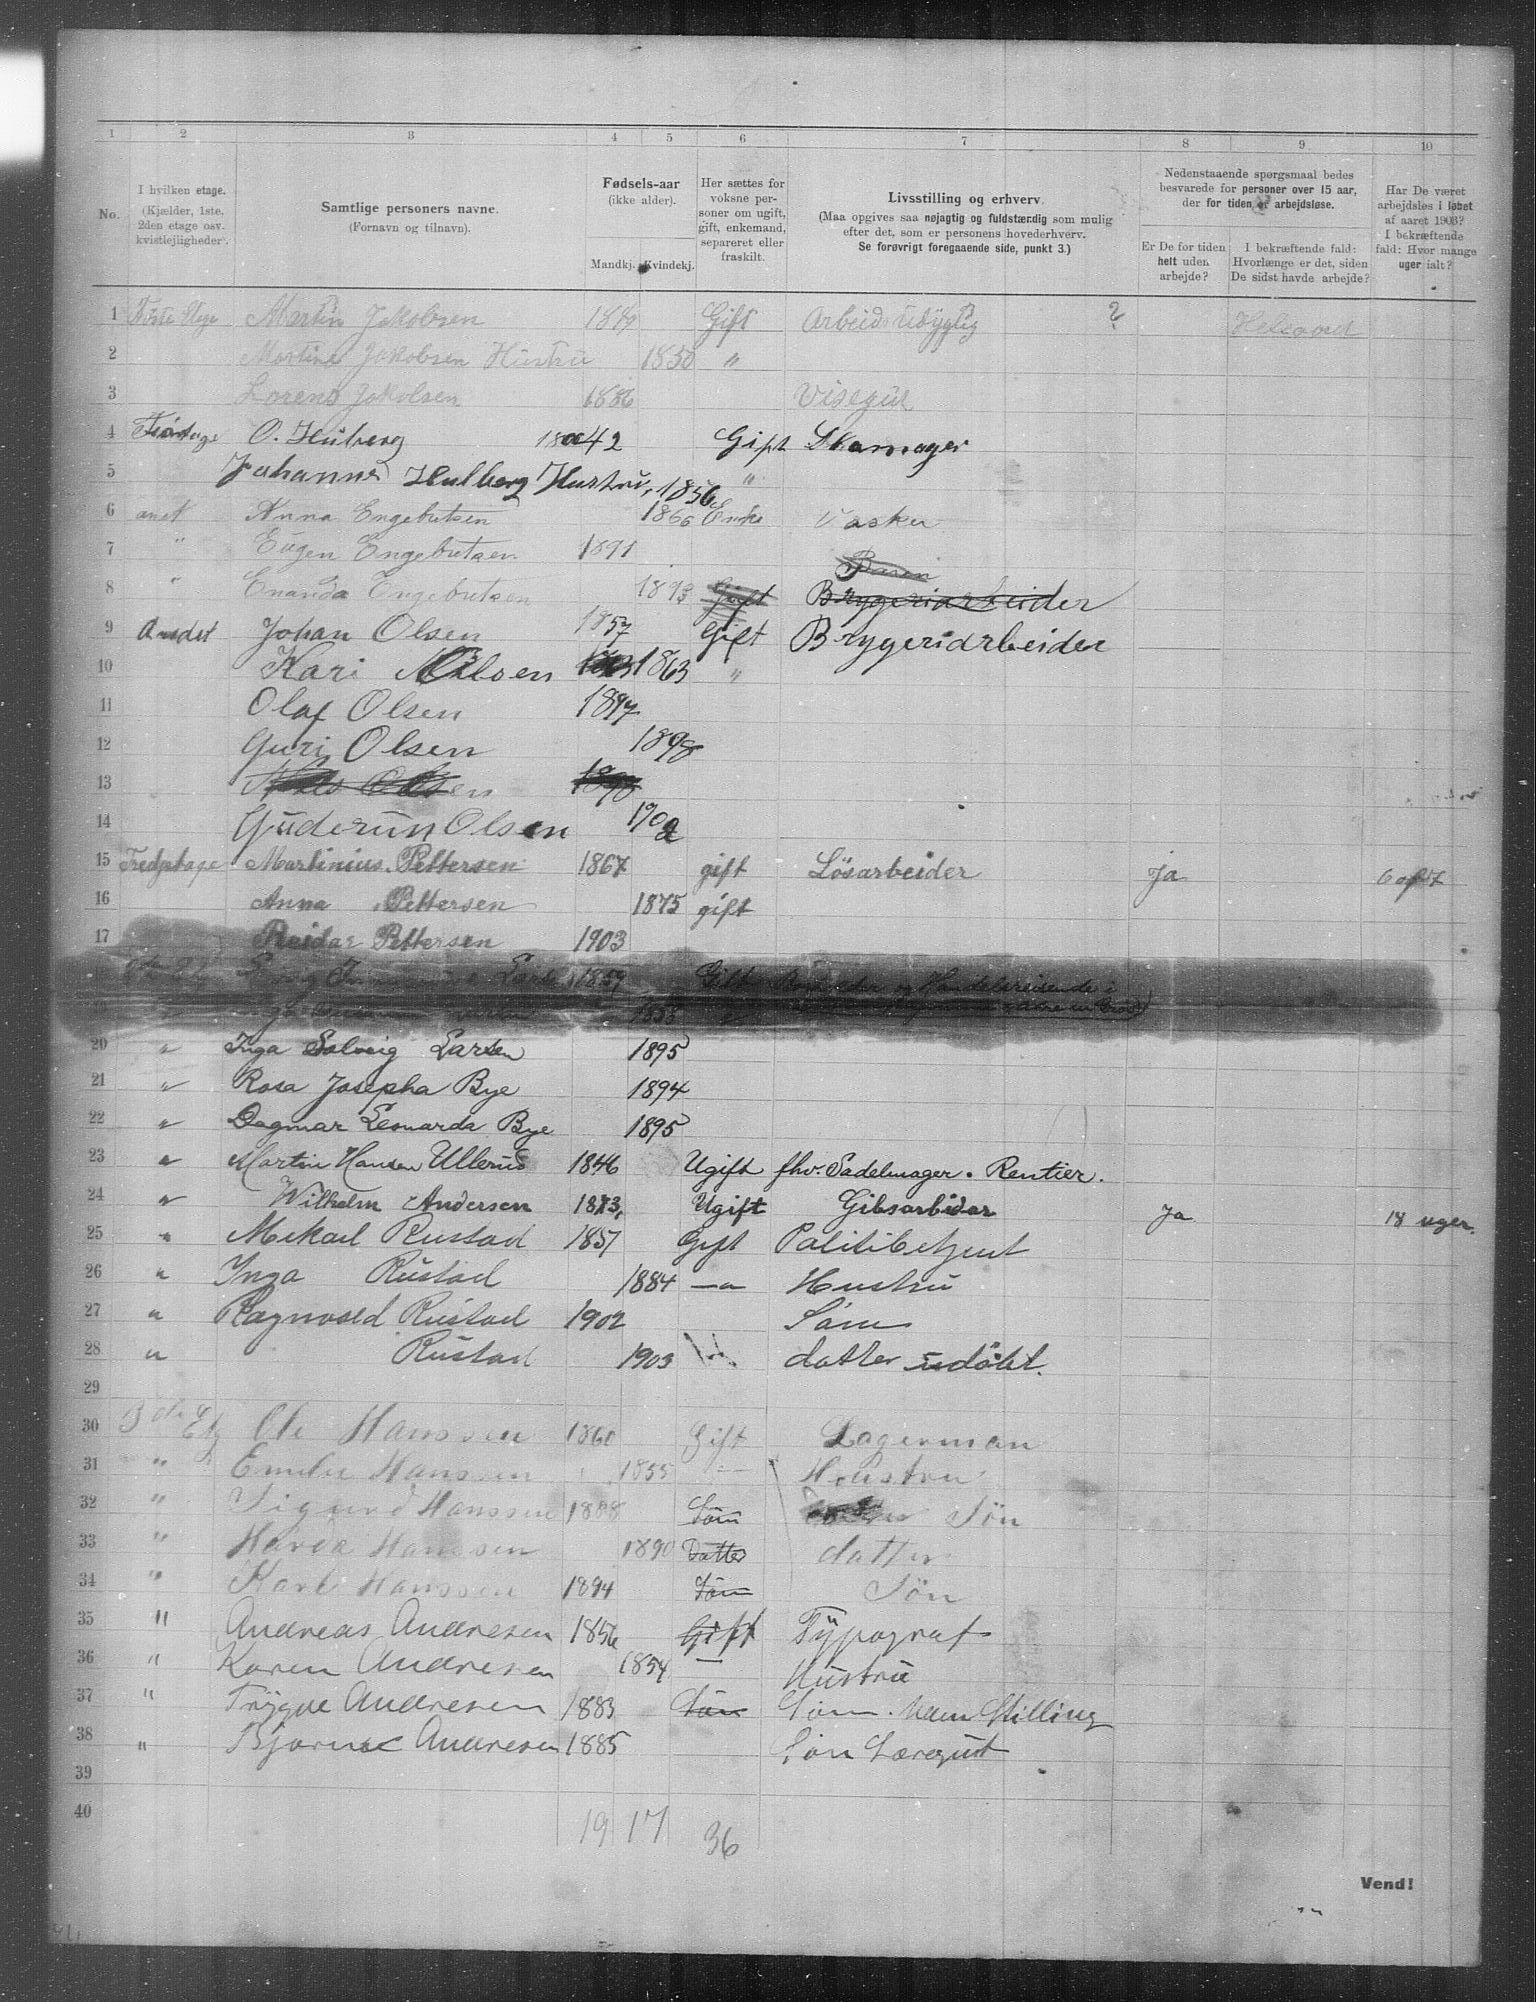 1 2 3 4 5 6 7 8 9 10
No.
I hvilken etage.
(Kjælder, 1ste, 2den etage osv. kvistleiligheder).
Samtlige personers navne.
(Fornavn og tilnavn).
Fødsels-aar
(ikke alder).
Mandkj. Kvindekj.
Her sættes for voksne personer om ugift, gift, enkemand, separeret eller fraskilt.
Livsstilling og erhverv.
(Maa opgives saa nøjagtig og fuldstændig som mulig efter det, som er personens hovederhverv.
Se forøvrigt foregaaende side, punkt 3.)
Nedenstaaende spørgsmaal bedes besvarede for personer over 15 aar, der for tiden er arbejdsløse.
Er De for tiden helt uden arbejde?
I bekræftende fald: Hvorlænge er det, siden De sidst havde arbejde?
Har De været arbejdsløs i løbet af aaret 1903?
I bekræftende fald: Hvor mange uger ialt?
1 Martin Jakobsen Gift Arbeidsudygtig ?
2 Martine Jakobsen Hustru 1850 "
3 Lorens Jakobsen 1886 Visegut
4 O. Hulberg 1842 Gift Skomager
5 Johanne Hulberg Hustru, 1856 "
6 anet Anna Engebretsen 1866 Enke Vasker
7 " Eugen Engebretsen 1891
8 " Engebretsen 1893 Gift Bryggeriarbeider
9 Andet Johan Olsen 1857 Gift Bryggeriarbeider
10 Kari Olsen 1863 "
11 Olaf Olsen 1897
12 Guri Olsen 1898
13 Olsen
14 Guderun Olsen 1902
15 Martinius Pettersen 1867 gift Lösarbeider ja
16 Anna Pettersen 1875 gift
17 Reidar Pettersen 1903
Larsen 1859 Gift og Handelsreisende i
19
20 " Inga Solveig Larsen 1895
21 " Rosa Josepha Bye 1894
22 " Dagmar Leonarda Bye 1895
23 " Martin Hansen Ullerud 1846 Ugift fhv. Sadelmager. Rentier.
24 " Wilhelm Andersen 1873, Ugift Gibsarbidar Ja 18 uger.
25 " Mekael Rustad 1857 Gift Politibetjent
26 " Inga Rustad 1884 —"— Hustru
27 " Ragnvald Rustad 1902 Sön
28 " Rustad 1903 datter udöbt.
29
30 3die Etg Ole Hanssen 1860 Gift Lagerman
31 " Emilie Hanssen 1855 — Houstru
32 " Sigurd Hanssen 1888 Sön Sön
33 " Hanssen 1890 Datter datter
34 " Karl Hanssen 1894 Sön Sön
35 " Andreas Andresen 1856 Gift Typograf
36 " Karen Andresen 1854 — Hustru
37 " Trygve Andresen 1883 Sön Sön. Uden Stilling
38 " Bjarne Andresen 1885 Sön Læregut
39
40
19 17 36
Vend!